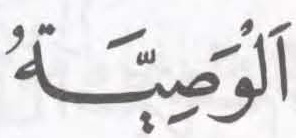 اَلْوَصِيَّةُ